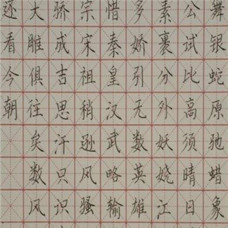 舞银蛇原驰蜡象
公试比高须晴日
素裹分外妖娆江
多娇引无数英雄
惜秦皇汉武略输
宗宋祖稍逊风骚
骄成吉思汗只识
大雕俱往矣数风
还看今朝